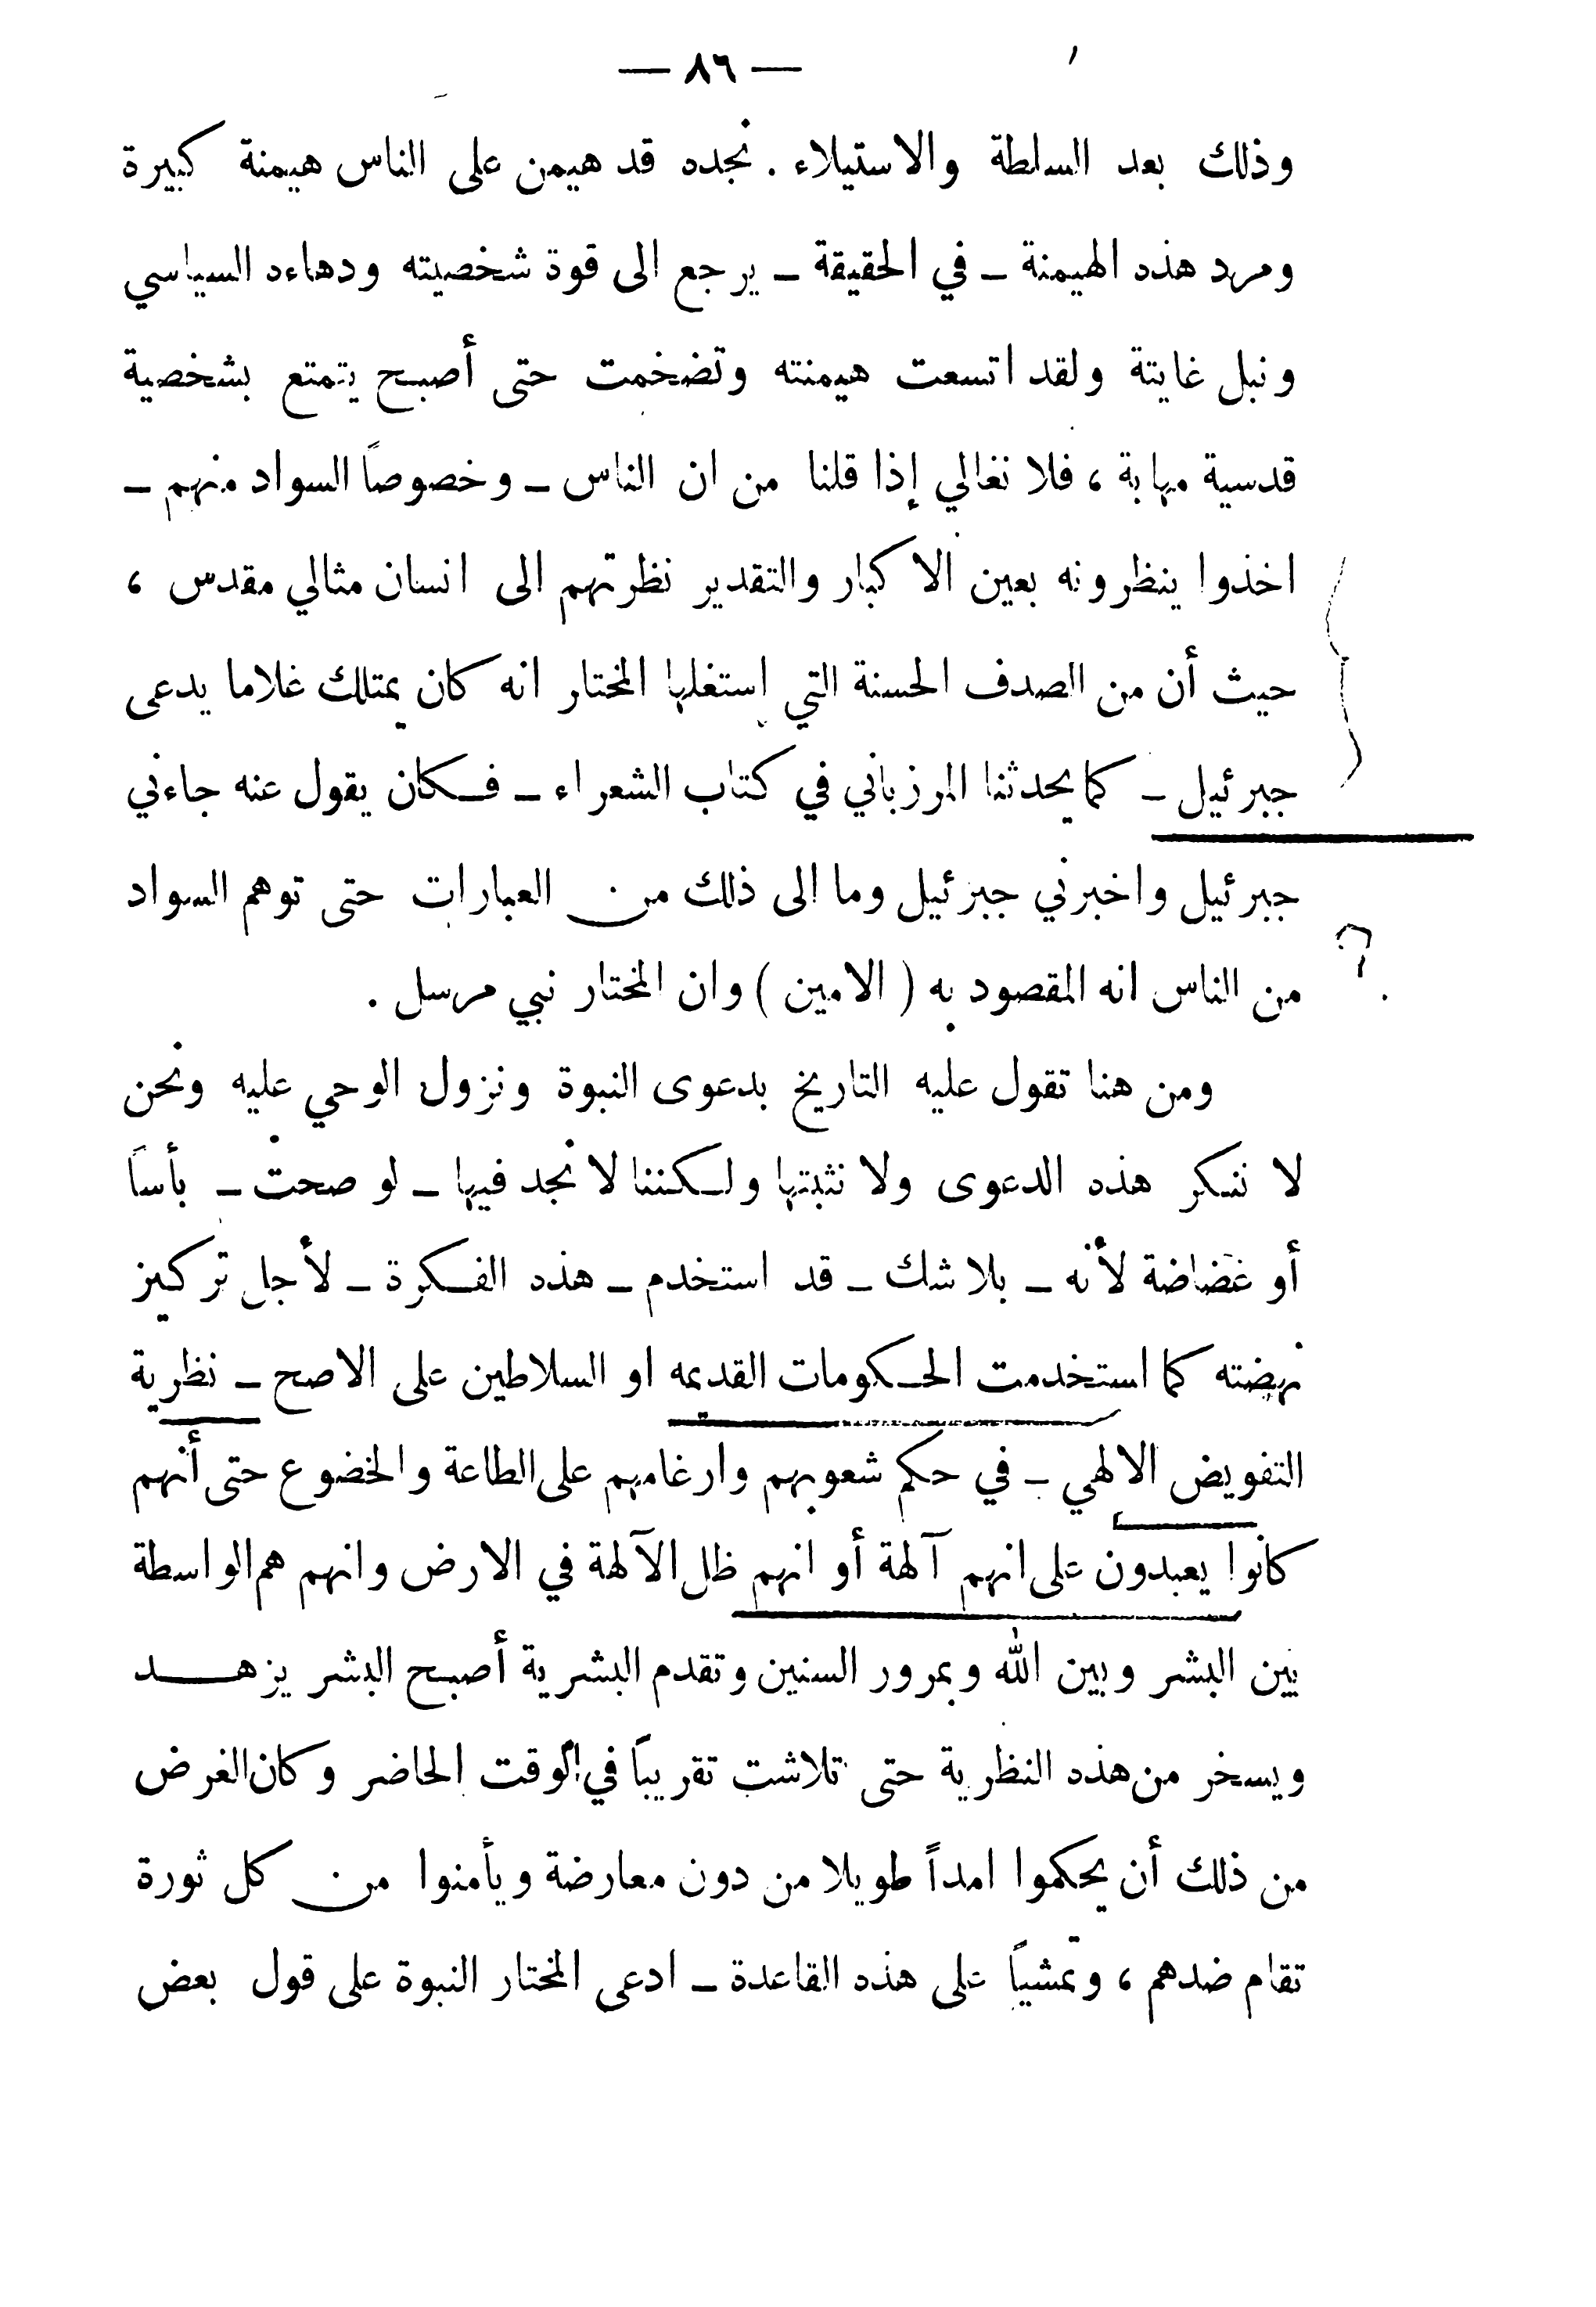 — ٨٦ —
وذلك بعد السلطة والاستيلاء . نجده قد هيمن على الناس هيمنة كبيرة
ومرد هذه الهيمنة ـ في الحقيقة ـ يرجع الى قوة شخصيته ودهاءه السياسي
ونبل غايتة ولقد اتسعت هيمنته وتضخمت حتى أصبح يتمتع بشخصية
قدسية مهابة ، فلا نغالي إذا قلنا من ان الناس ـ وخصوصاً السواد منهم ـ
اخذوا ينظرونه بعين الاكبار والتقدير نظرتهم الى انسان مثالي مقدس ،
حيث أن من الصدف الحسنة التي إستغلها المختار انه كان يمتلك غلاما يدعى
جبرئيل ـ كما يحدثنا المرزباني في كتاب الشعراء ـ فكان يقول عنه جاءني
جبرئيل واخبرني جبرئيل وما الى ذلك من العبارات حتى توهم السواد
من الناس انه المقصود به ( الامين ) وان المختار نبي مرسل .
؟
ومن هنا تقول عليه التاريخ بدعوى النبوة ونزول الوحي عليه ونحن
لا ننكر هذه الدعوى ولا نثبتها ولكننا لا نجد فيها ـ لو صحت ـ بأساً
أو غضاضة لأنه ـ بلا شك ـ قد استخدم ـ هذه الفكرة ـ لأجل تركيز
نهضته كما استخدمت الحكومات القديمه او السلاطين على الاصح ـ نظرية
التفويض الالهي ـ في حكم شعوبهم وارغامهم على الطاعة والخضوع حتى أنهم
كانوا يعبدون على انهم آلهة أو انهم ظل الآلهة في الارض وانهم هم الواسطة
بين البشر وبين الله وبمرور السنين وتقدم البشرية أصبح البشر يزهد
ويسخر من هذه النظرية حتى تلاشت تقريباً في الوقت الحاضر وكان الغرض
من ذلك أن يحكموا امداً طويلا من دون معارضة ويأمنوا من كل ثورة
تقام ضدهم ، وتمشياً على هذه القاعدة ـ ادعى المختار النبوة على قول بعض